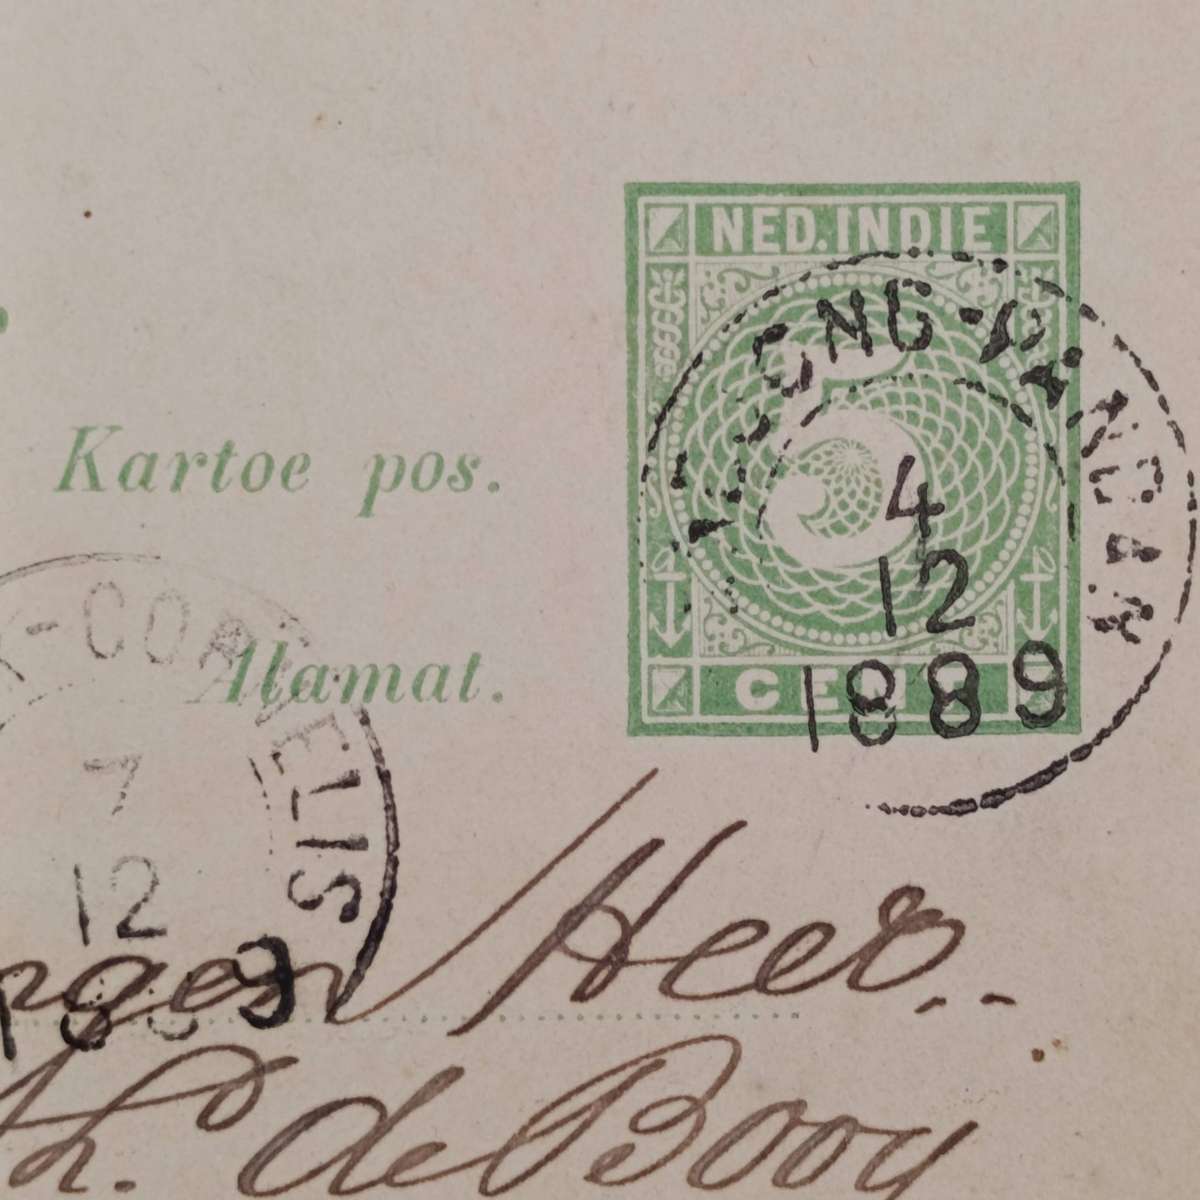 NED.INDIE
5
CENT
TJILLONG-BANGAN
4
12
1889
Kartoe pos.
Alamat.
-CORNELIS
7
12
1889
Heer..
th. de Booy